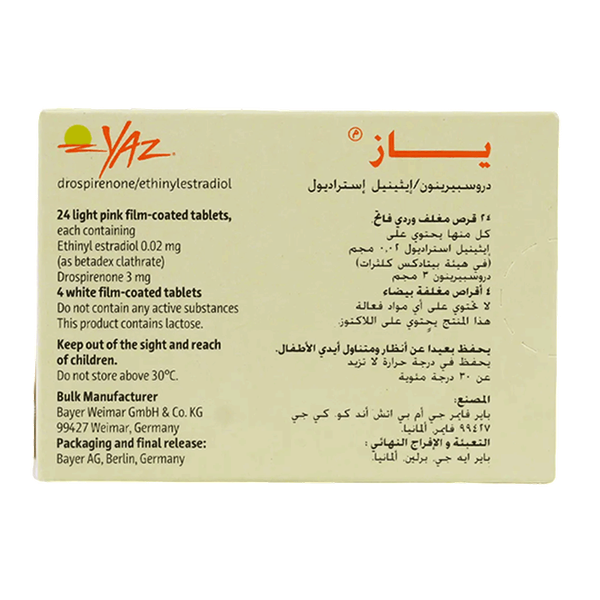 YAZ®
drospirenone/ethinylestradiol
24 light pink film-coated tablets,
each containing
Ethinyl estradiol 0.02 mg
(as betadex clathrate)
Drospirenone 3 mg
4 white film-coated tablets
Do not contain any active substances
This product contains lactose.
Keep out of the sight and reach
of children.
Do not store above 30°C.
Bulk Manufacturer
Bayer Weimar GmbH & Co. KG
99427 Weimar, Germany
Packaging and final release:
Bayer AG, Berlin, Germany
يـــاز م
دروسبيرينون/إيثينيل إستراديول
٢٤ قرص مغلف وردي فاتح
كل منها يحتوي على
إيثينيل استراديول ٠,٠٢ مجم
(في هيئة بيتادكس كلثرات)
دروسبيرينون ٣ مجم
٤ أقراص مغلفة بيضاء
لا تحتوي على أي مواد فعالة
هذا المنتج يحتوي على اللاكتوز.
يحفظ بعيدا عن أنظار ومتناول أيدي الأطفال.
يحفظ في درجة حرارة لا تزيد
عن ٣٠ درجة مئوية
المصنع:
باير فايمر جي أم بي اتش أند كو. كي جي
٩٩٤٢٧ فايمر، ألمانيا.
التعبئة و الإفراج النهائي:
باير ايه جي، برلين، ألمانيا.